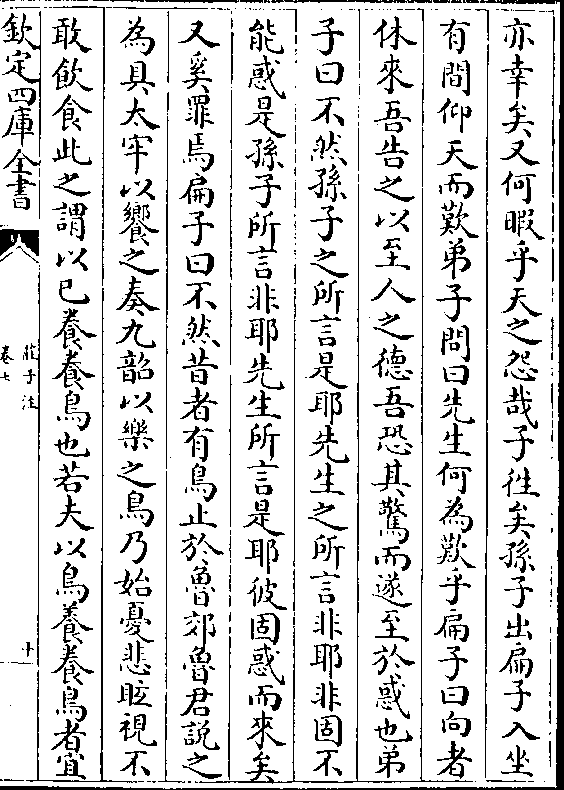 亦幸矣又何暇乎天之怨哉子徃矣孫子出扁子入坐
有間仰天而歎弟子問曰先生何為歎乎扁子曰向者
休來吾告之以至人之德吾恐其驚而遂至於惑也弟
子曰不然孫子之所言是耶先生之所言非耶非固不
能惑是孫子所言非耶先生所言是耶彼固惑而來矣
又奚罪焉扁子曰不然昔者有鳥止於魯郊魯君說之
為具太牢以饗之奏九韶以樂之鳥乃始憂悲眩視不
敢飲食此之謂以已養養鳥也若夫以鳥養養鳥者宜
欽定四庫全書
莊子注
卷七
十